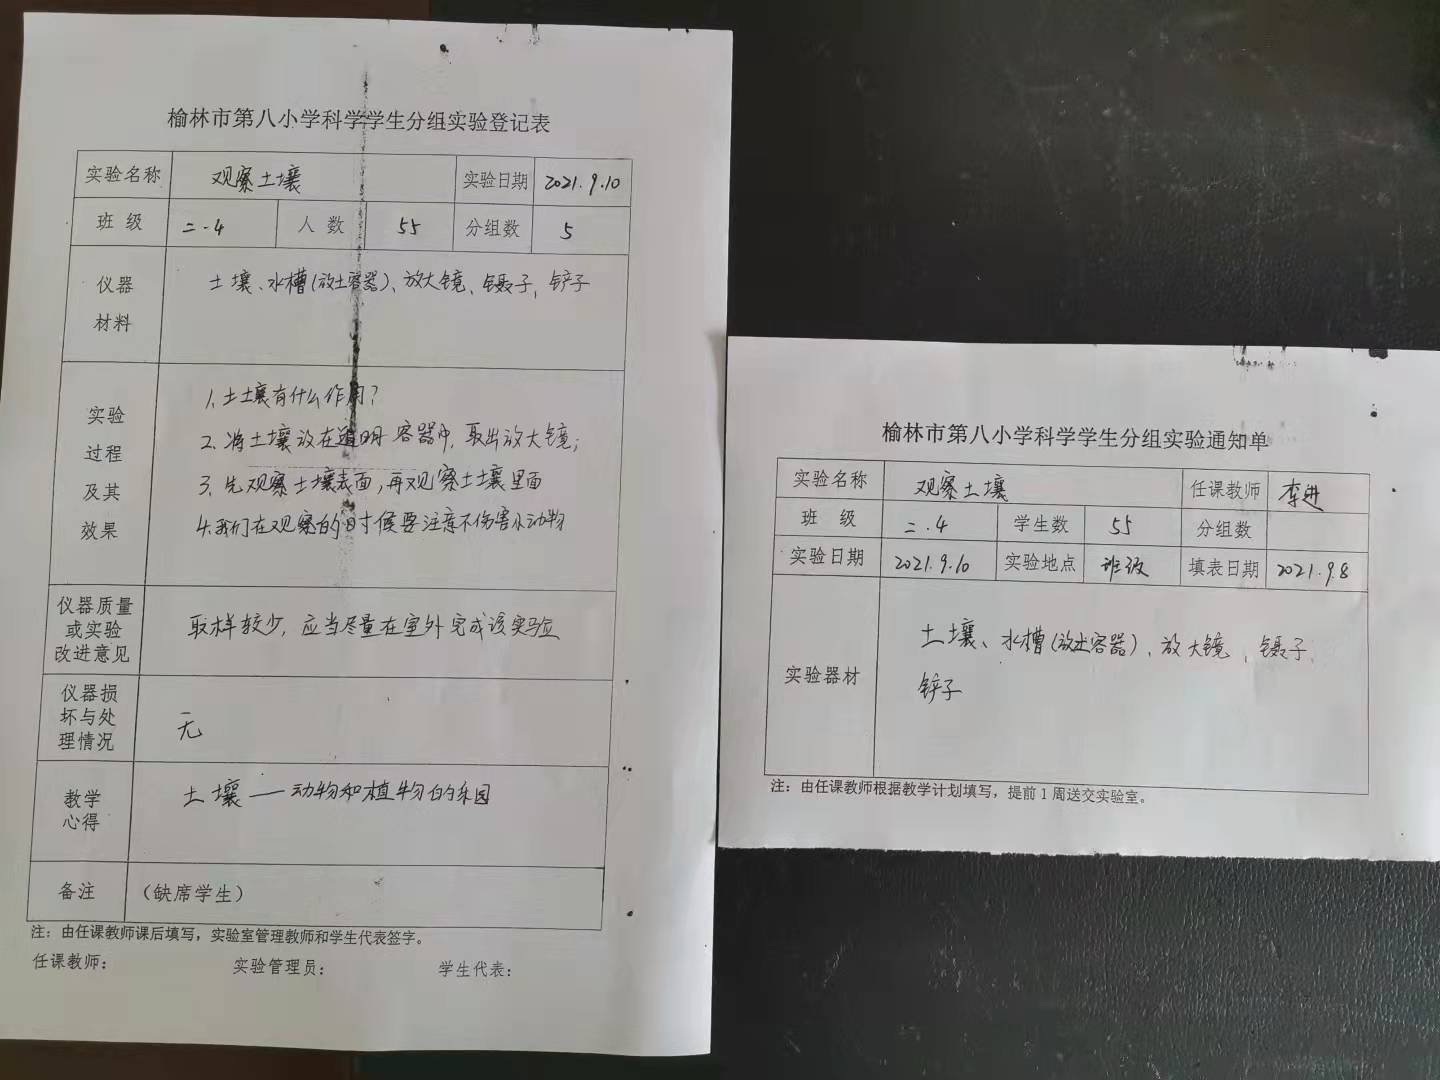 榆林市第八小学科学学生分组实验登记表
实验名称 观察土壤 实验日期 2021.9.10
班 级 二.4 人 数 55 分组数 5
仪器
材料
土壤、水槽(放土容器)、放大镜、镊子、铲子
实验
过程
及其
效果
1、土壤有什么作用?
2、将土壤放在透明容器中,取出放大镜;
3、先观察土壤表面,再观察土壤里面
4、我们在观察的时候要注意不伤害小动物
仪器质量
或实验
改进意见
取样较少,应当尽量在室外完成该实验
仪器损
坏与处
理情况
无
教学
心得
土壤——动物和植物的乐园
备注 (缺席学生)
注:由任课教师课后填写,实验室管理教师和学生代表签字。
任课教师: 实验管理员: 学生代表:
榆林市第八小学科学学生分组实验通知单
实验名称 观察土壤 任课教师 李进
班 级 二.4 学生数 55 分组数
实验日期 2021.9.10 实验地点 班级 填表日期 2021.9.8
实验器材
土壤、水槽(放土容器)、放大镜、镊子、
铲子
注:由任课教师根据教学计划填写,提前1周送交实验室。